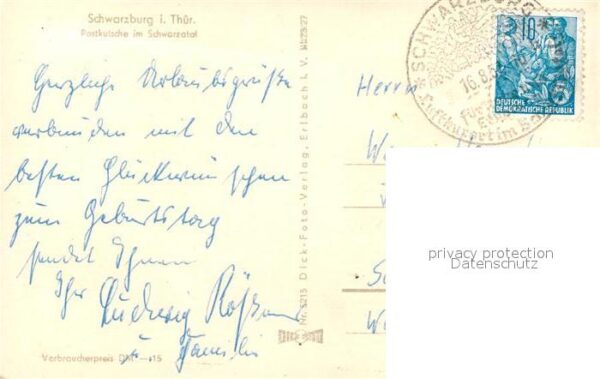 Schwarzburg i. Thür.
Postkutsche im Schwarzatal
Herzliche Urlaubsgrüße
verbunden mit den
besten Glückwünschen
zum Geburtstag
sendet Ihnen
Ihr Ludwig
u. Familie
Verbraucherpreis DM -.15
Nr. 5215 Dick-Foto-Verlag, Erlbach i. V.
Herrn
SCHWARZBURG
16.8.
10
DEUTSCHE
DEMOKRATISCHE REPUBLIK
privacy protection
Datenschutz